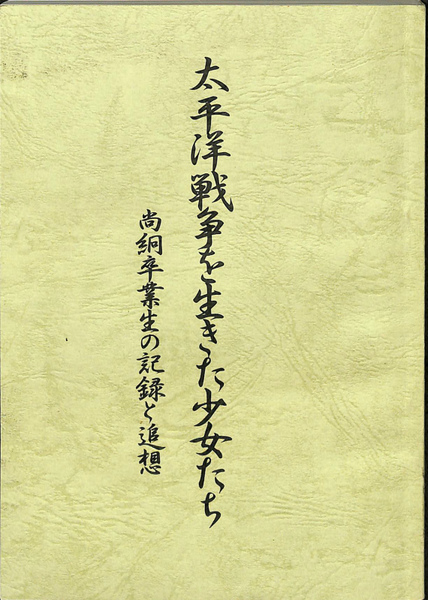 太平洋戦争を生きた少女たち
尚絅卒業生の記録と追想